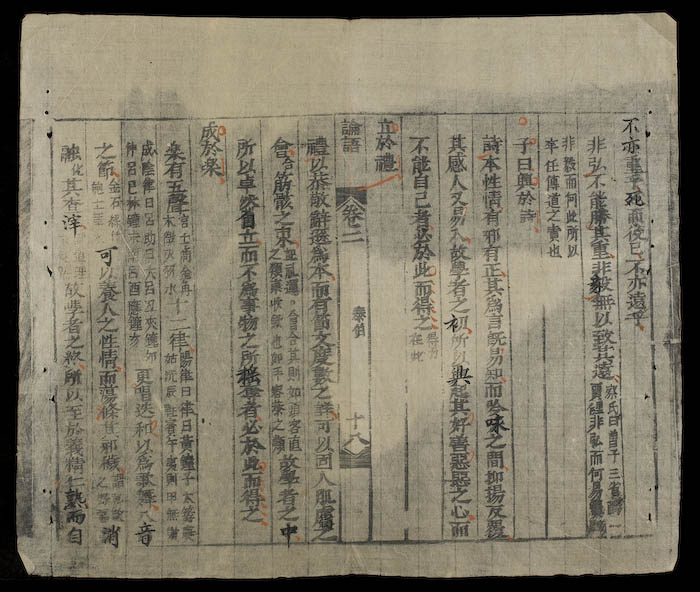 不亦重乎死而後已不亦遠乎
非弘不能勝其重非毅無以致其遠
蔡氏曰曾子三省
賈健非弘而何易簀
非毅而何此所以
卒任傳道之責也
子曰興於詩
詩本性情有邪有正其為言既易知而吟咏之間抑揚反覆
其感人又易入故學者之初所以興起其好善惡惡之心而
不能自已者必於此而得之
在此
立於禮
論語
卷二
泰伯
十八
禮以恭敬辭遜為本而有節文度數之詳可以固人肌膚之
會筋骸之束
故學者之中
所以卓然自立而不為事物之所搖奪者必於此而得之
成於樂
樂有五聲
十二律
更唱迭和以為歌舞八音
之節
可以養人之性情而蕩滌其邪穢
消
融
其查滓
故學者之終所以至於義精仁熟而自